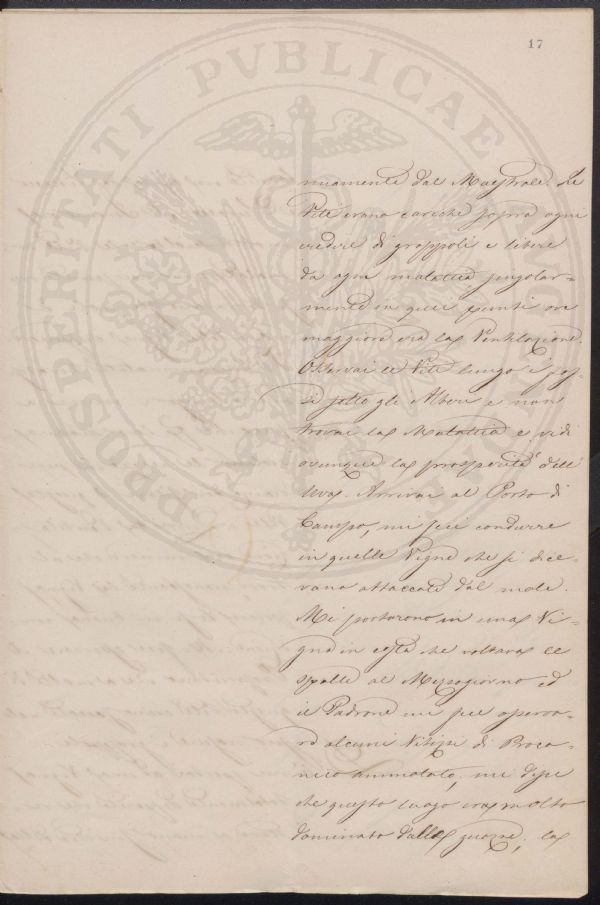 17
PROSPERITATI PVBLICAE AVGENDAE
nuamente dal Maestrale. Le
Viti erano cariche sopra ogni
credere di grappoli e libere
da ogni malattia singolar-
mente in quei punti ove
maggiore era la Ventilazione.
Osservai le Viti lungo i fos-
si sotto gli Alberi e non
trovai la Malattia e vidi
ovunque la prosperità dell'
Uva. Arrivai al Porto di
Campo, mi feci condurre
in quelle Vigne che si dice-
vano attaccate dal male.
Mi portarono in una Vi-
gna in costa che voltava le
spalle al Mezzogiorno ed
il Padrone mi fece osserva-
re alcuni Vitizzi di Proca-
nico ammalato; mi disse
che questo luogo era molto
dominato dalle guazze; la